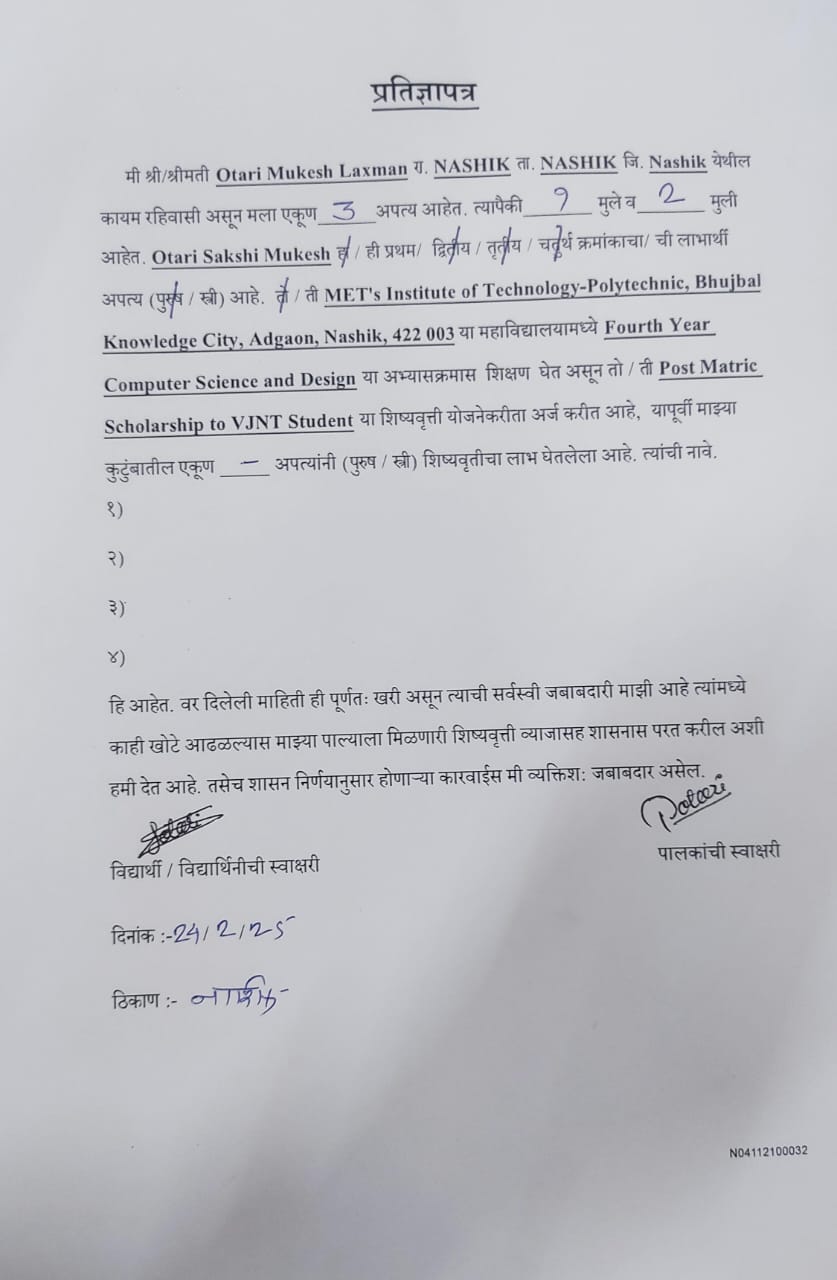 प्रतिज्ञापत्र
मी श्री/श्रीमती Otari Mukesh Laxman रा. NASHIK ता. NASHIK जि. Nashik येथील
कायम रहिवासी असून मला एकूण 3 अपत्य आहेत. त्यापैकी १ मुले व 2 मुली
आहेत. Otari Sakshi Mukesh हा / ही प्रथम/ द्वितीय / तृतीय / चतुर्थ क्रमांकाचा/ ची लाभार्थी
अपत्य (पुरुष / स्त्री) आहे. तो / ती MET's Institute of Technology-Polytechnic, Bhujbal
Knowledge City, Adgaon, Nashik, 422 003 या महाविद्यालयामध्ये Fourth Year
Computer Science and Design या अभ्यासक्रमास शिक्षण घेत असून तो / ती Post Matric
Scholarship to VJNT Student या शिष्यवृत्ती योजनेकरीता अर्ज करीत आहे, यापूर्वी माझ्या
कुटुंबातील एकूण – अपत्यांनी (पुरुष / स्त्री) शिष्यवृतीचा लाभ घेतलेला आहे. त्यांची नावे.
१)
२)
३)
४)
हि आहेत. वर दिलेली माहिती ही पूर्णतः खरी असून त्याची सर्वस्वी जबाबदारी माझी आहे त्यांमध्ये
काही खोटे आढळल्यास माझ्या पाल्याला मिळणारी शिष्यवृत्ती व्याजासह शासनास परत करील अशी
हमी देत आहे. तसेच शासन निर्णयानुसार होणाऱ्या कारवाईस मी व्यक्तिश: जबाबदार असेल.
विद्यार्थी / विद्यार्थिनीची स्वाक्षरी
पालकांची स्वाक्षरी
दिनांक :-24/2/25
ठिकाण :- नाशिक
N04112100032